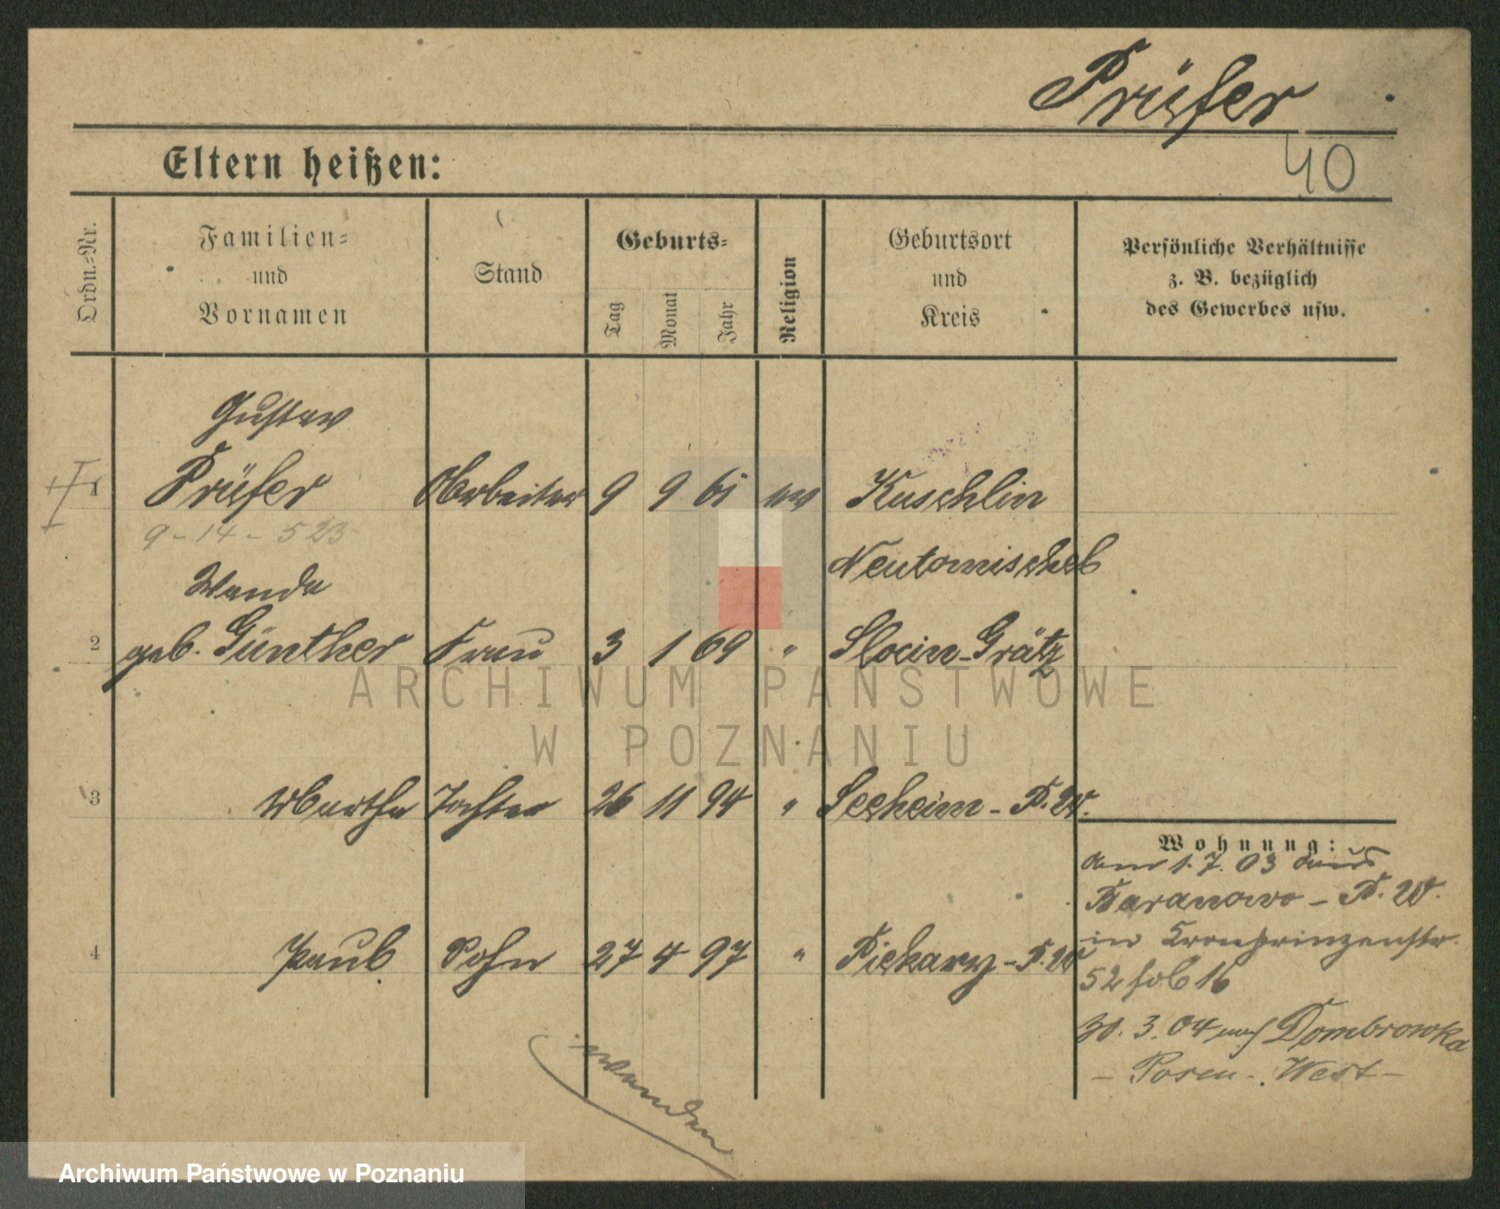 Prüfer
Eltern heißen:
40
Ordn.-Nr.
Familien-
und
Vornamen
Stand
Geburts-
Tag
Monat
Jahr
Religion
Geburtsort
und
Kreis
Persönliche Verhältnisse
z. B. bezüglich
des Gewerbes usw.
Gustav
1 Prüfer Arbeiter 9 9 61 ev Kuschlin
9-14-523
Neutomischel
Wanda
2 geb. Günther Frau 3 1 69 " Slocin-Grätz
3 Martha Tochter 26 11 94 " Seeheim - P. W.
4 Paul Sohn 27 4 97 " Piekary - P. W
Wohnung:
am 1.7.03 aus
Baranowo - P. W.
in Kronprinzenstr.
52 bei
30.3.04 nach Dombrowka
- Posen - West -
wenden
ARCHIWUM PAŃSTWOWE
W POZNANIU
Archiwum Państwowe w Poznaniu